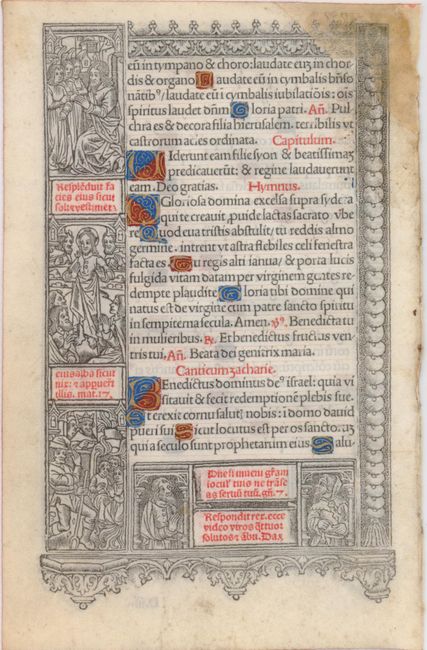 eū in tympano & choro: laudate euʒ in chor
dis & organo Laudate eū in cymbalis bn̄so
nātib⁹/ laudate eū i cymbalis iubilatiōis: oīs
spiritus laudet dn̄m Gloria patri. Añ. Pul
chra es & decora filia hierusalem. terribilis vt
castrorum acies ordinata. Capitulum.
Viderunt eam filie syon & beatissimaʒ
predicauerūt: & regine laudauerunt
eam. Deo gratias. Hymnus.
O Gloriosa domina excelsa supra sydera
qui te creauit ꝓuide lactas sacrato vbe
re Quod eua tristis abstulit/ tu reddis almo
germine. intrent vt astra flebiles celi fenestra
facta es. Tu regis alti ianua/ & porta lucis
fulgida vitam datam per virginem gentes re-
dempte plaudite Gloria tibi domine qui
natus est de virgine cum patre sancto spiritu
in sempiterna secula. Amen. ꝟ. Benedicta tu
in mulieribus. ℟. Et benedictus fructus ven
tris tui. Añ. Beata dei genitrix maria.
Canticum zacharie.
Benedictus dominus de⁹ israel: quia vi
sitauit & fecit redemptionē plebis sue
Et erexit cornu salut⸝ nobis: i domo dauid
pueri sui Sicut locutus est per os sancto⸝ꝝ
qui a seculo sunt prophetarum eius Salu-
Resplēduit fa
cies eius sicut
sol: & vestimēta
eius alba sicut
nix: & apparuerūt
illis. mat. 17.
Dn̄e si inueni gr̄am
i ocul⸝ tuis ne trāse
as seruū tuū. gñ. 7.
Respondit rex. ecce
video viros q̄ttuor
solutos & ābu. Dax